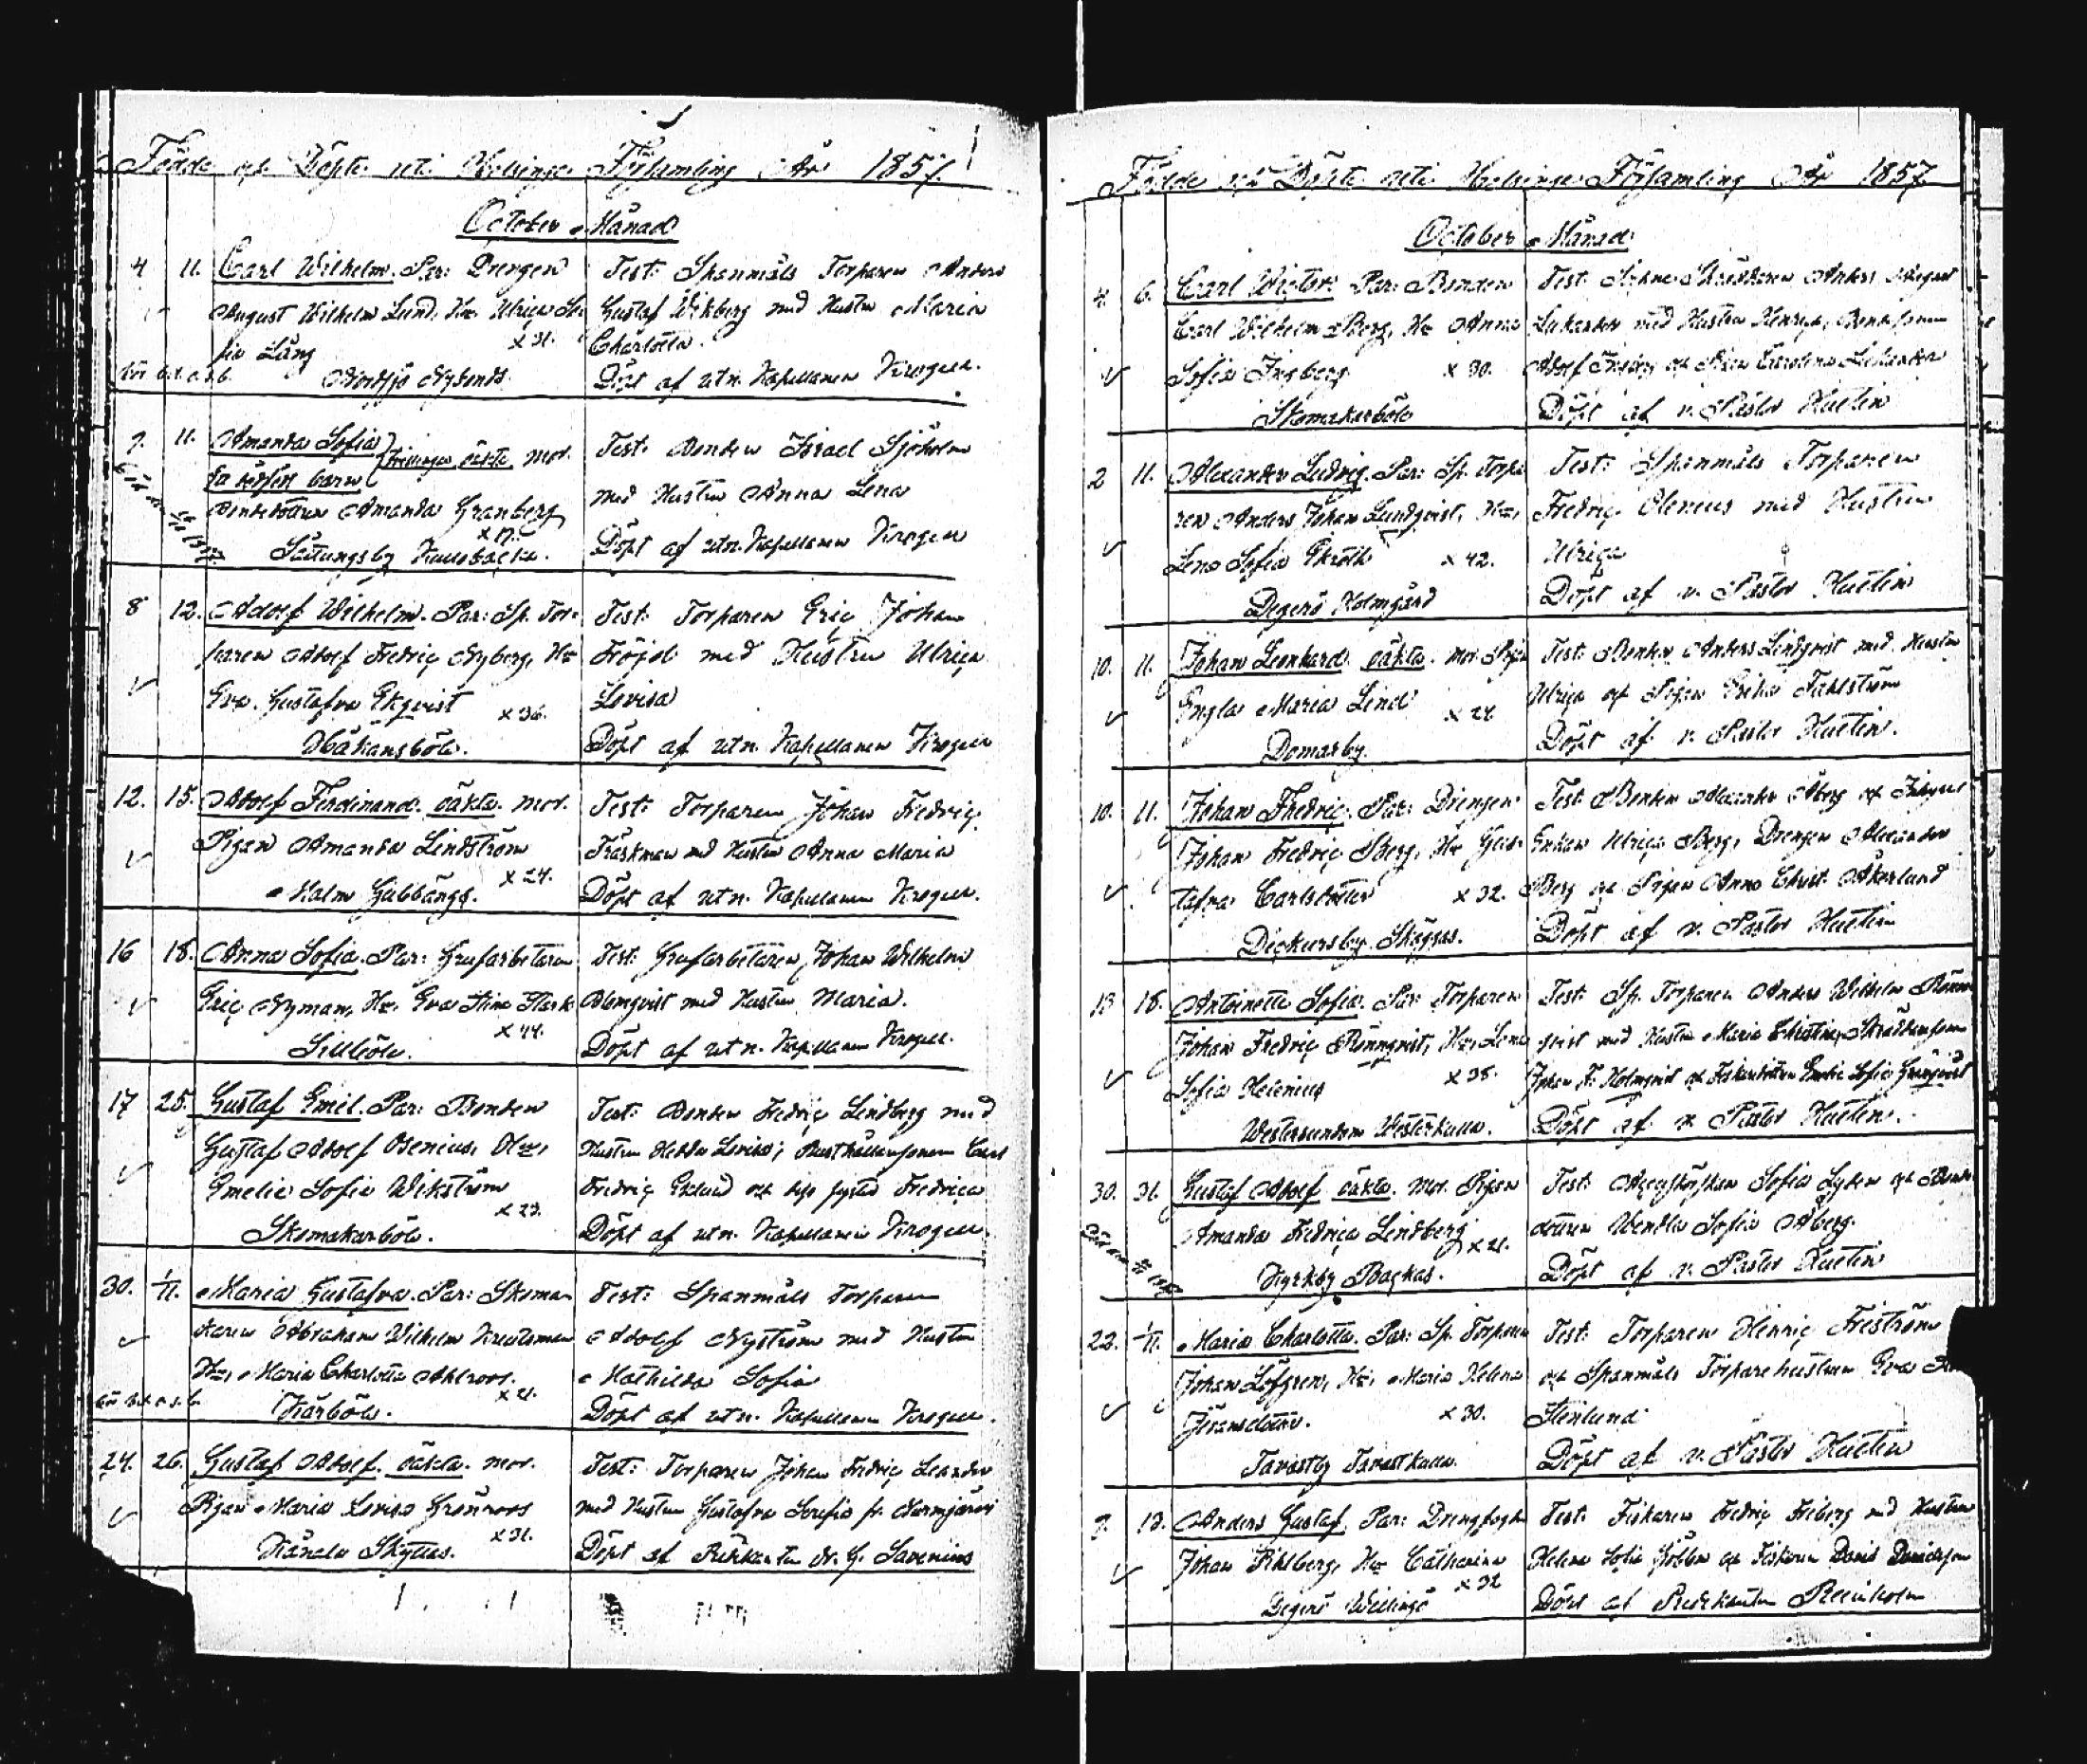 Födde och Döpte uti Helsinge Församling År 1857.
October Månad
4 11. Carl Wilhelm. Par: Drengen
August Wilhelm Lund, Hu. Ulrica So-
fia Lång x 31.
Nordsjö Nybondas.
Test: Spanmåls Torparen Anders
Gustaf Wikberg med Hustru Maria
Charlotta.
Döpt af utn. Kapellanen Krogell.
9. 11. Amanda Sofia
oäkta mor.
Bondedottren Amanda Granberg
x 19.
Sottungsby
Test: Bonden Israel Sjöholm
med Hustru Anna Lena
Döpt af utn. Kapellanen Krogell
8 12. Adolf Wilhelm. Par: Sp. Tor-
paren Adolf Fredric Nyberg, Hu
Eva Gustafva Ekqvist x 36.
Håkansböle.
Test: Torparen Eric Johan
Fröjd med Hustru Ulrica
Lovisa
Döpt af utn. Kapellanen Krogell
12. 15. Adolf Ferdinand. oäkta. mor.
Pigan Amanda Lindström
x 24.
Malm Gubbängs.
Test: Torparen Johan Fredric
Träskman md Hustru Anna Maria
Döpt af utn. Kapellanen Krogell.
16 18. Anna Sofia. Par: Grufarbetaren
Eric Nyman, Hu. Eva Stina Stark
x 44.
Sillböle.
Test: Grufarbetaren Johan Wilhelm
Blomqvist med Hustru Maria.
Döpt af utn. Kapellanen Krogell.
17 25. Gustaf Emil. Par: Bonden
Gustaf Adolf Osenius, Hu,
Emelie Sofia Wikström
x 23.
Skomakarböle.
Test: Bonden Fredric Lindberg med
Hustru Hedda Lovisa; Rusthållaresonen Carl
Fredric Eklund och dess syster Fredrica
Döpt af utn. Kapellanen Krogell
30. 1/11. Maria Gustafva. Par: Skoma-
karen Abraham Wilhelm Kreutzman
Hu, Maria Charlotta Ahlroos.
x 21.
Kårböle.
Test: Spanmåls Torparen
Adolf Nyström med Hustru
Mathilda Sofia
Döpt af utn. Kapellanen Krogell.
24. 26. Gustaf Adolf. oäkta. mor.
Pigan Maria Lovisa Grönroos
x 31.
Kånala Skyttas.
Test: Torparen Johan Fredric Leander
med Hustru Gustafva Serafia fr. Nurmijärvi
Döpt af Predikanten G. Savenius
Födde och Döpte uti Helsinge Församling År 1857
October Månad
4. 6. Carl Victor. Par: Bonden
Carl Wilhelm Berg, Hu Anna
Sofia Ingberg. x 30.
Skomakarböle
Test: Anders August
med Hustru
Adolf och Pigan Carolina
Döpt af v. Pastor Huetin
2 11. Alexander Ludvig. Par: Sp. Torpa-
ren Anders Johan Lundqvist, Hu,
Lena Sofia Ekroth x 42.
Degerö Holmgård
Test: Spanmåls Torparen
Fredric Olenius med Hustru
Ulrica
Döpt af v. Pastor Huetin
10. 11. Johan Leonhard. oäkta. mor. Pigan
Engla Maria Lind x 24
Domarby.
Test: Bonden Anders Lindqvist med Hustru
Ulrica och Pigan Erika Fahlström
Döpt af v. Pastor Huetin.
10. 11. Johan Fredric. Par: Drengen
Johan Fredric Berg, Hu Gus-
tafva Carlsdotter x 32.
Dickursby Skäggas.
Test: Bonden Alexander Åberg och
Enkan Ulrica Berg, Drengen Alexander
Berg och Pigan Anna Christ. Åkerlund
Döpt af v. Pastor Huetin
13 18. Antoinette Sofia. Par: Torparen
Johan Fredric Rönnqvist, Hu, Lena
Sofia Helenius x 38.
Westersundom Westerkulla.
Test: Sp. Torparen Anders Wilhelm Rönn-
qvist med Hustru Maria Christina, Skräddaresonen
Johan F. Holmqvist och Emelie Sofia Grönqvist
Döpt af v. Pastor Huetin.
30. 31. Gustaf Adolf oäkta. Mor. Pigan
Amanda Fredrica Lindberg
x 21.
Kyrkby Backas.
Test: Sofia och Bonde-
dottren Wendla Sofia Åberg.
Döpt af v. Pastor Huetin
22. 1/11. Maria Charlotta. Par: Sp. Torparen
Johan Löfgren, Hu, Maria Helena
Jöransdotter. x 30.
Tavastby Tavastkulla.
Test: Torparen Henric Friström
och Spanmåls Torparehustrun Eva
Stenlund
Döpt af v. Pastor Huetin
9. 13. Anders Gustaf. Par: Drengfogden
Johan Pihlberg, Hu Catharina
x 32
Degerö Willinge
Test: Fiskaren Fredric Friberg md Hustru
Helena Sofia och Fiskaren David Davidsson
Döpt af Predikanten Reinholm